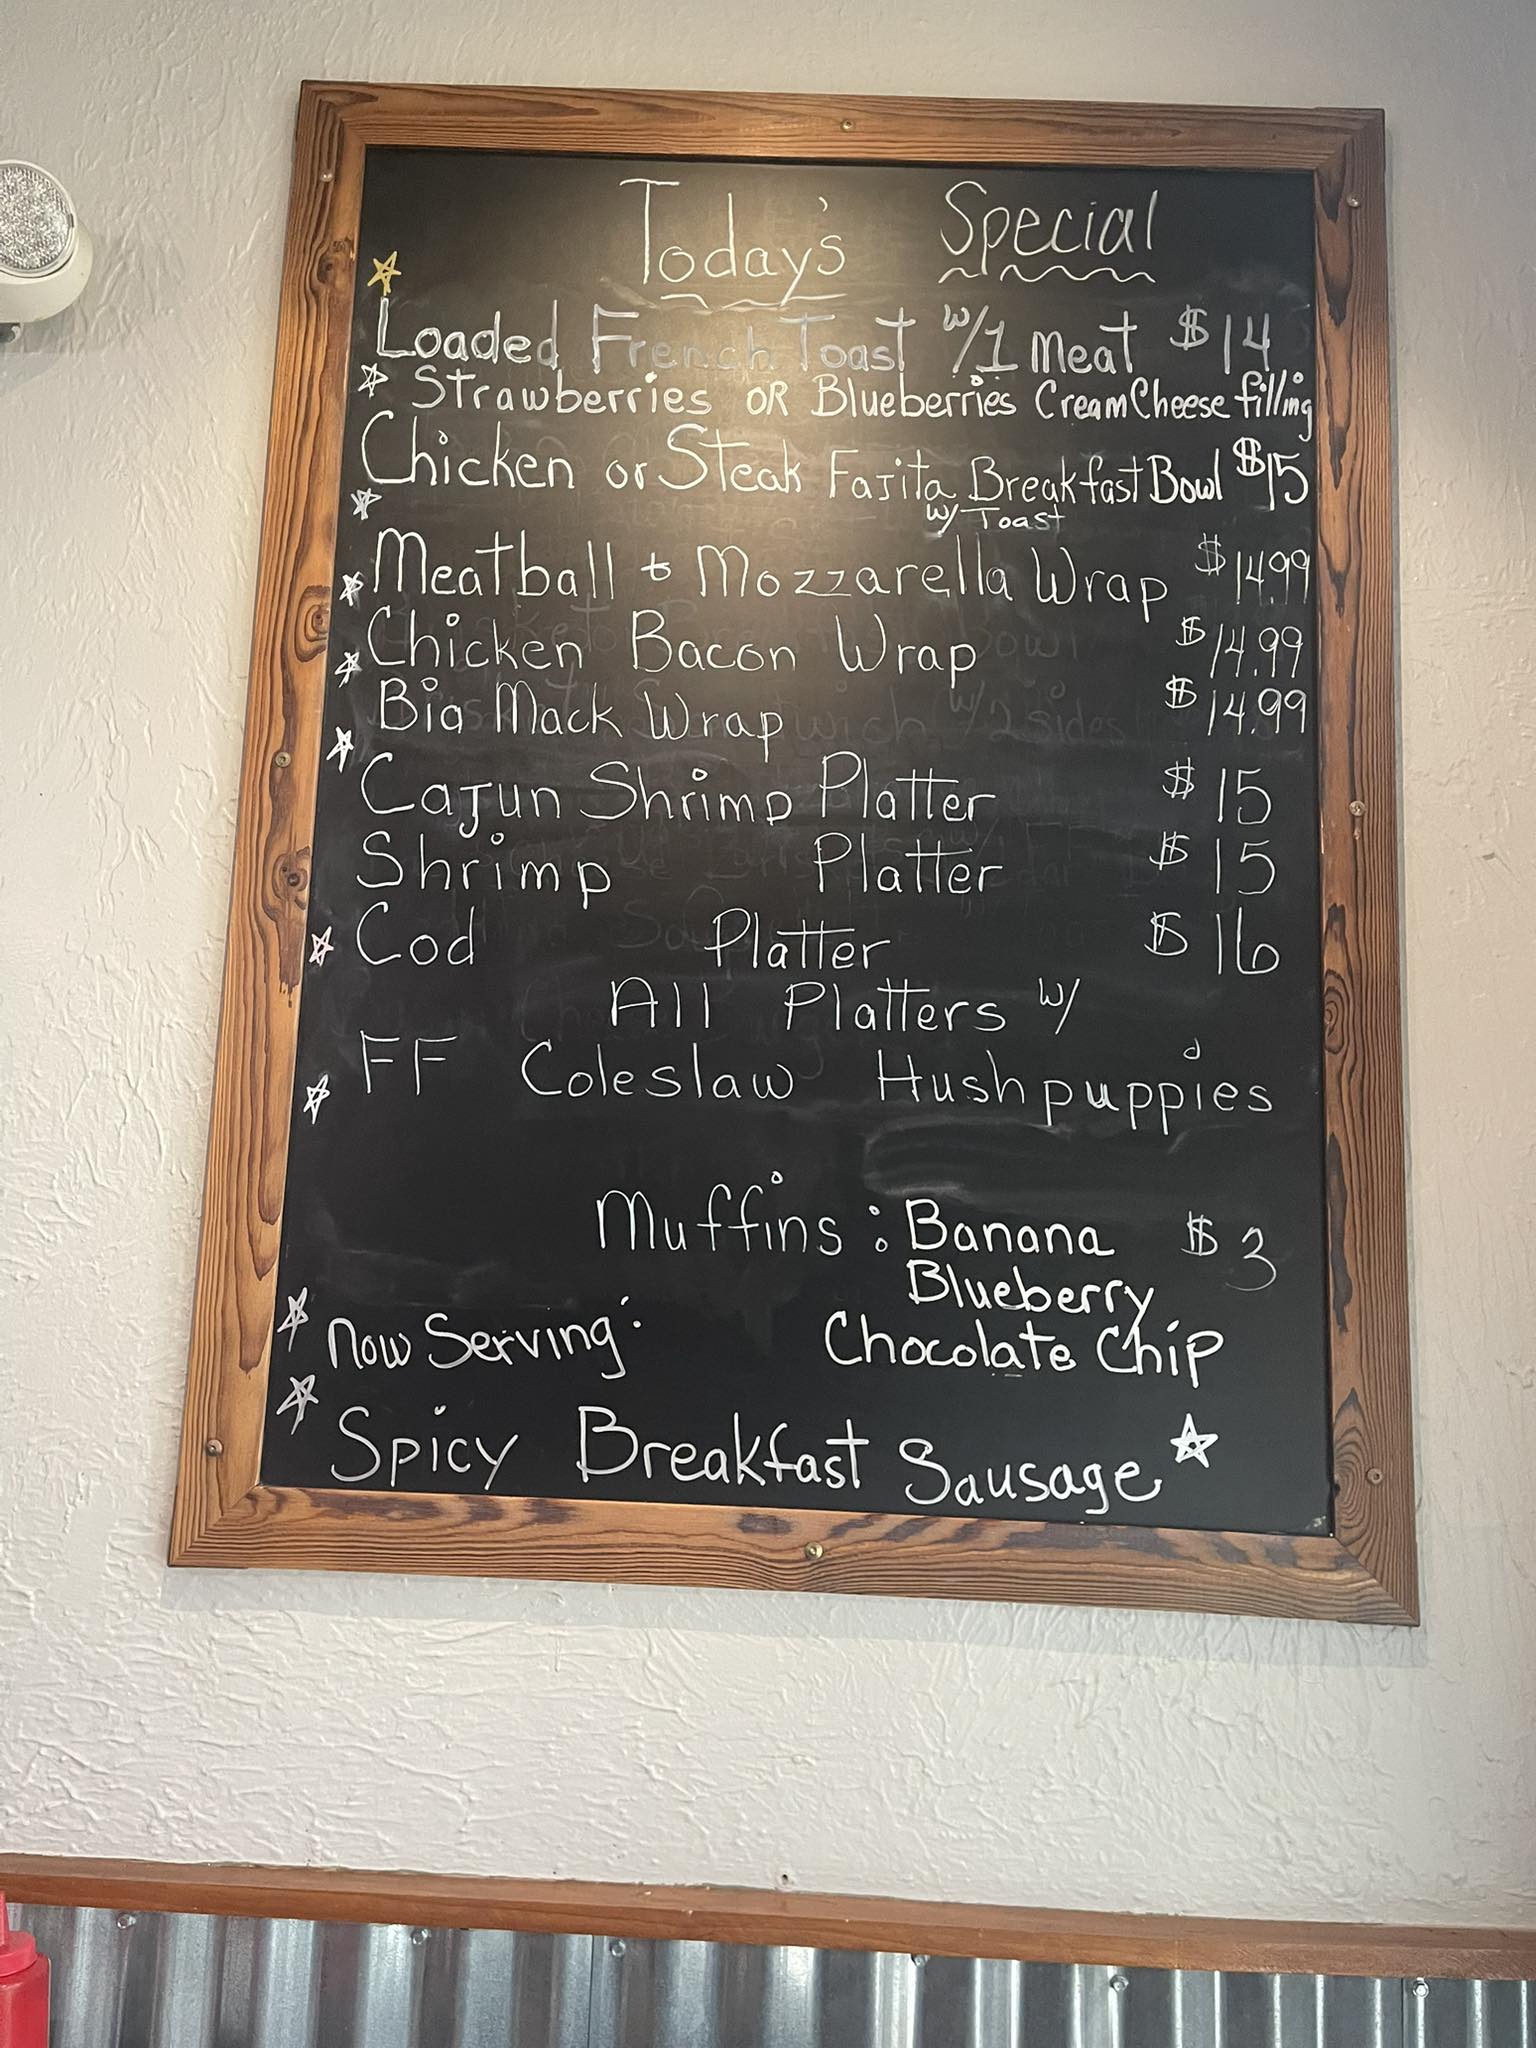 Today's Special
Loaded French Toast w/1 meat $14
Strawberries OR Blueberries Cream Cheese filling
Chicken or Steak Fajita Breakfast Bowl $15
w/ Toast
Meatball + Mozzarella Wrap $14.99
Chicken Bacon Wrap $14.99
Big Mack Wrap $14.99
Cajun Shrimp Platter $15
Shrimp Platter $15
Cod Platter $16
All Platters w/
FF Coleslaw Hushpuppies
Muffins: Banana $3
Blueberry
Now Serving: Chocolate Chip
Spicy Breakfast Sausage